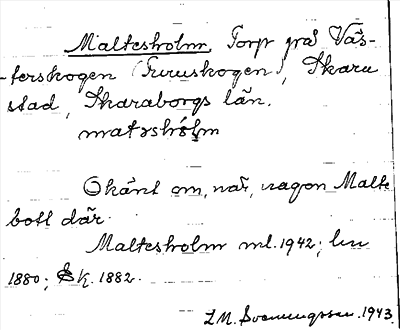 Maltesholm, Torp på Väs-
terskogen (Furuskogen), Skara
stad, Skaraborgs län.
matəshó̱lm
Okänt om, när, någon Malte
bott där.
Maltesholm ml. 1942;
1880; Sk. 1882.
L M. Svenungsson. 1943.